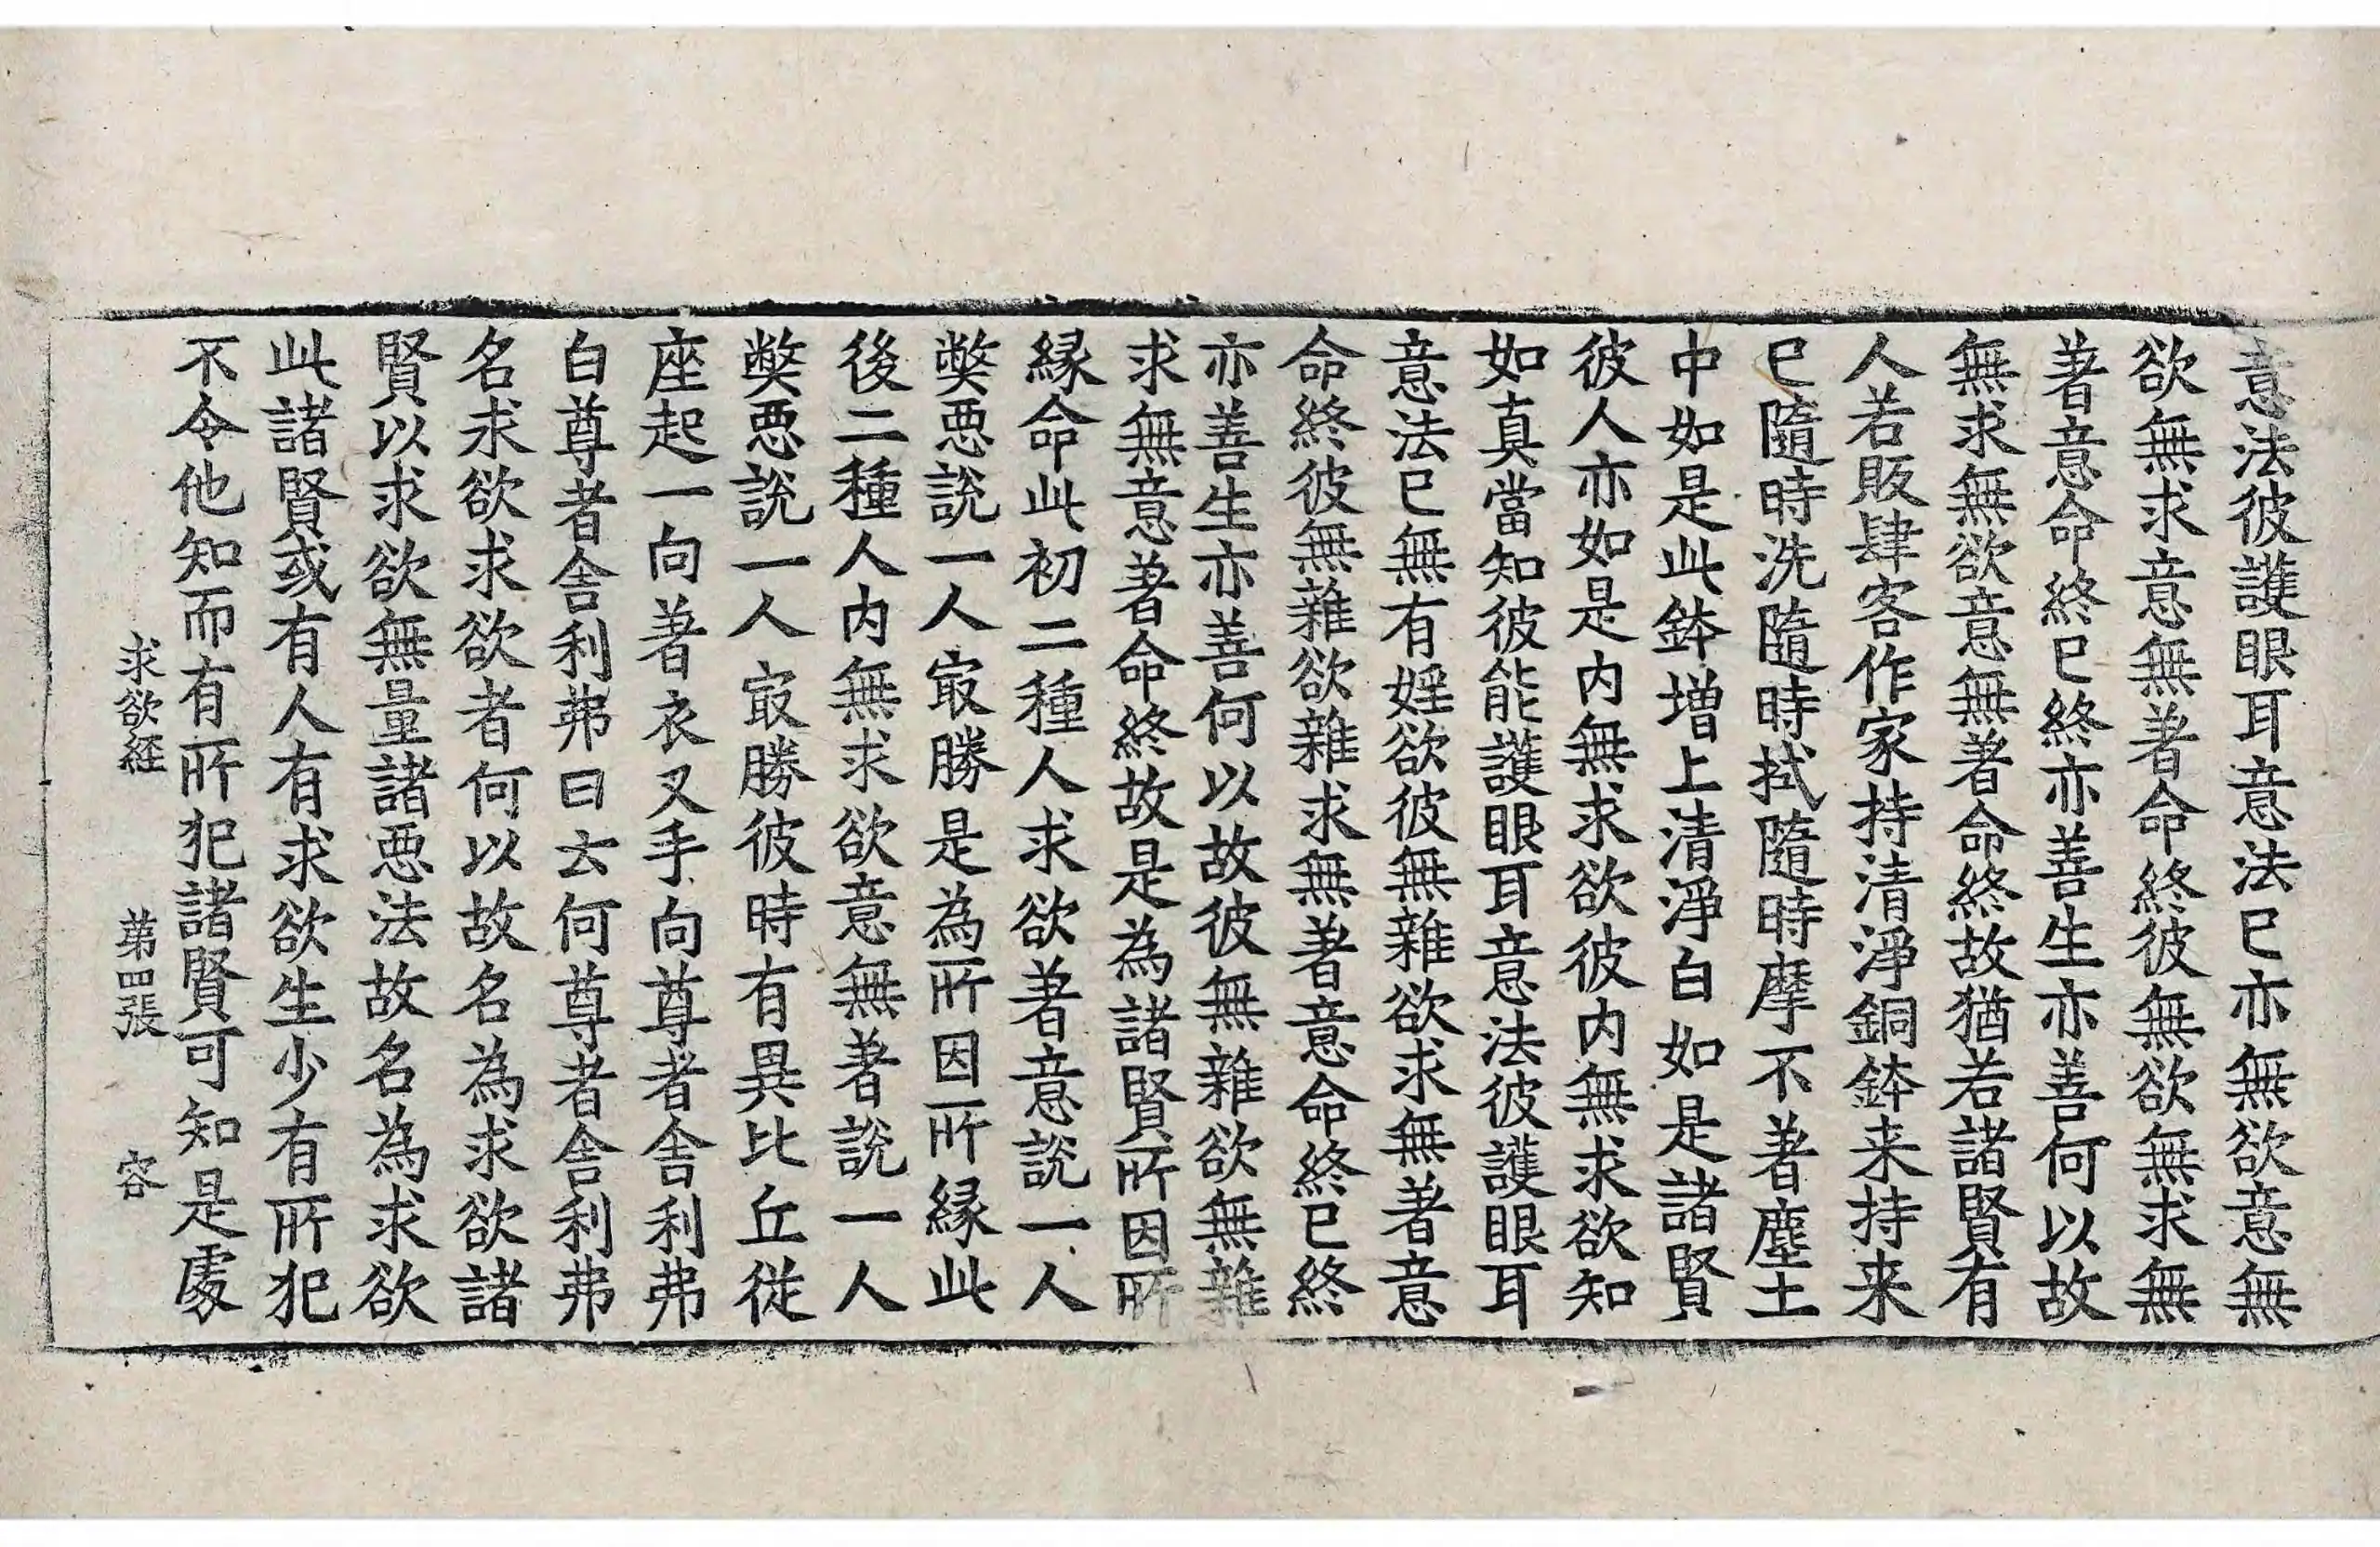 意法彼護眼耳意法已亦無欲意無
欲無求意無著命終彼無欲無求無
著意命終已終亦善生亦善何以故
無求無欲意無著命終故猶若諸賢有
人若販肆客作家持清淨銅鉢来持来
已隨時洗隨時拭隨時摩不著塵土
中如是此鉢增上清淨白如是諸賢
彼人亦如是内無求欲彼内無求欲知
如真當知彼能護眼耳意法彼護眼耳
意法已無有婬欲彼無雜欲求無著意
命終彼無雜欲雜求無著意命終已終
亦善生亦善何以故彼無雜欲無雜
求無意著命終故是為諸賢所因所
縁命此初二種人求欲著意說一人
獘惡說一人冣勝是為所因所縁此
後二種人内無求欲意無著說一人
獘惡說一人冣勝彼時有異比丘從
座起一向著衣叉手向尊者舎利弗
白尊者舎利弗曰云何尊者舎利弗
名求欲求欲者何以故名為求欲諸
賢以求欲無量諸惡法故名為求欲
此諸賢或有人有求欲生少有所犯
不令他知而有所犯諸賢可知是處
求欲経　第四張　容